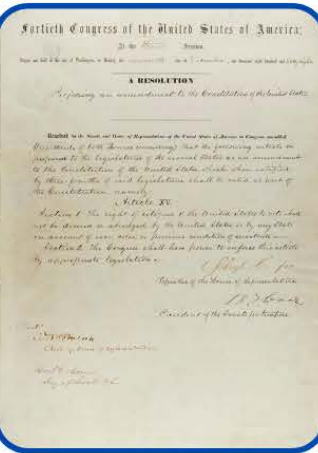 Fortieth Congress of the United States of America;
At the Third Session,
Begun and held at the city of Washington, on Monday, the seventh day of December, one thousand eight hundred and sixty-eight
A RESOLUTION
Proposing an amendment to the Constitution of the United States.
Resolved by the Senate and House of Representatives of the United States of America in Congress assembled,
(two-thirds of both Houses concurring) that the following article be
proposed to the legislatures of the several States as an amendment
to the Constitution of the United States which, when ratified
by three-fourths of said legislatures shall be valid as part of
the Constitution, namely:
Article XV.
Section 1. The right of citizens of the United States to vote shall
not be denied or abridged by the United States or by any State
on account of race, color, or previous condition of servitude.
Section 2. The Congress shall have power to enforce this article
by appropriate legislation.
Speaker of the House of Representatives
President of the Senate pro tempore
Attest
Clerk of House of Representatives